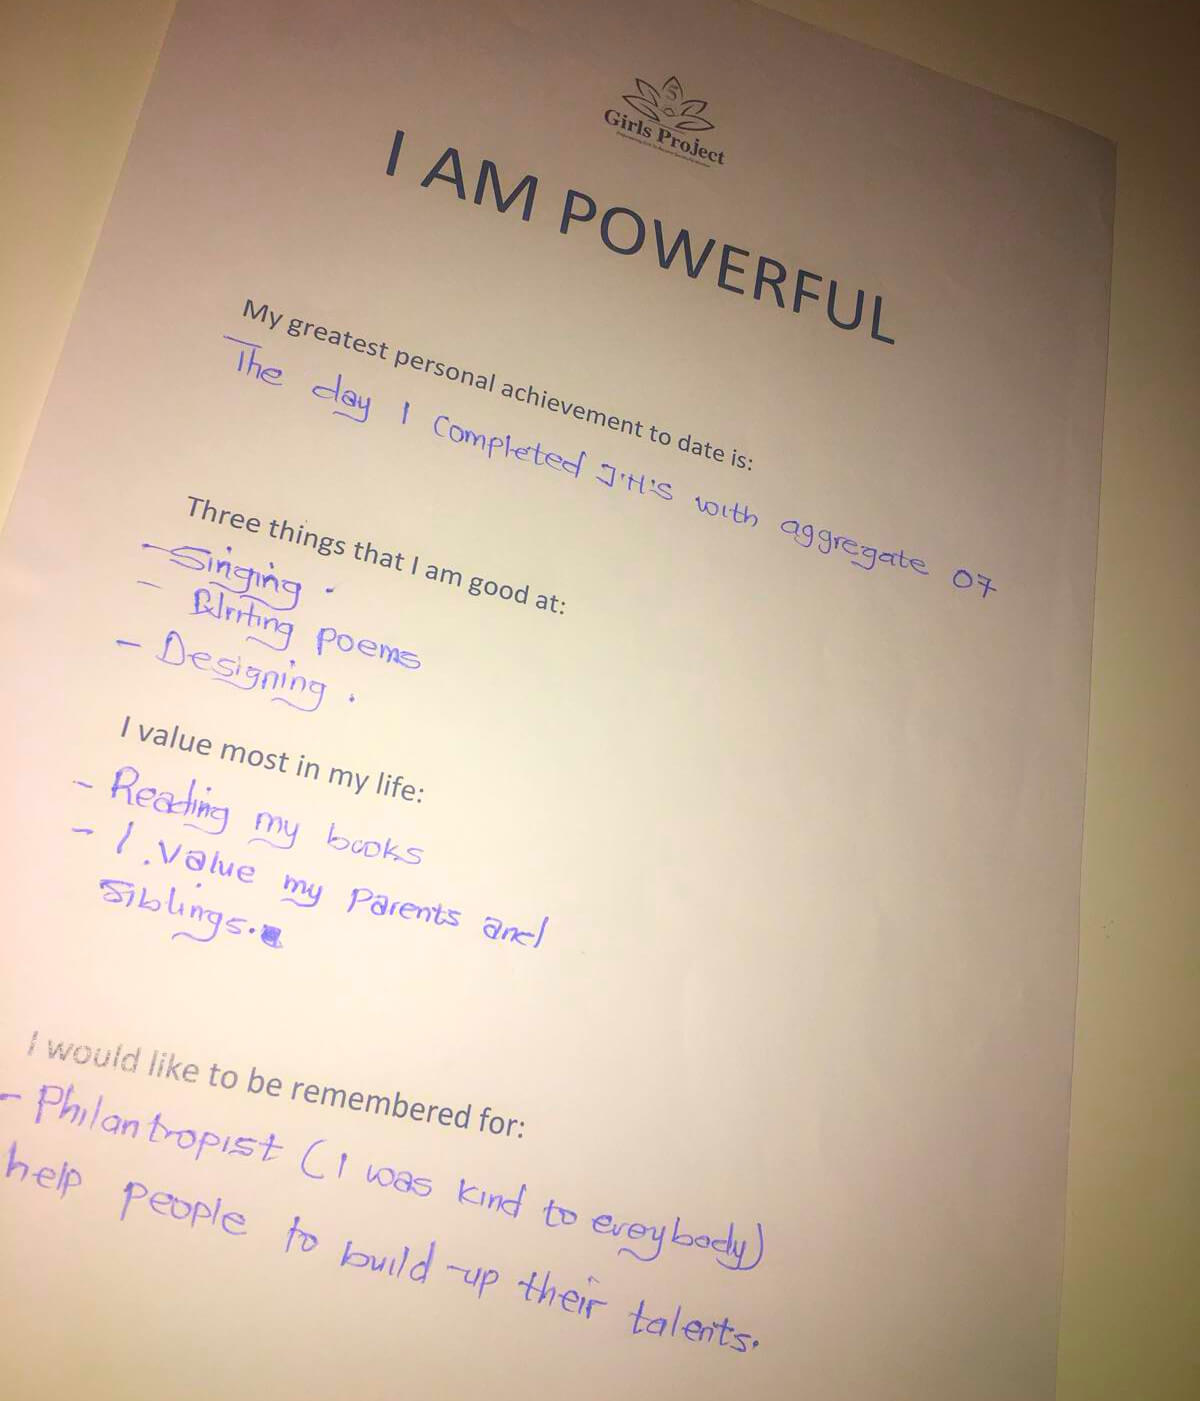 5
Girls Project
I AM POWERFUL
My greatest personal achievement to date is:
The day I Completed J.H.S with aggregate 07
Three things that I am good at:
- Singing.
- Writing poems
- Designing.
I value most in my life:
- Reading my books
- I. Value my Parents and
Siblings.
I would like to be remembered for:
- Philantropist (I was kind to eveybody)
help people to build-up their talents.